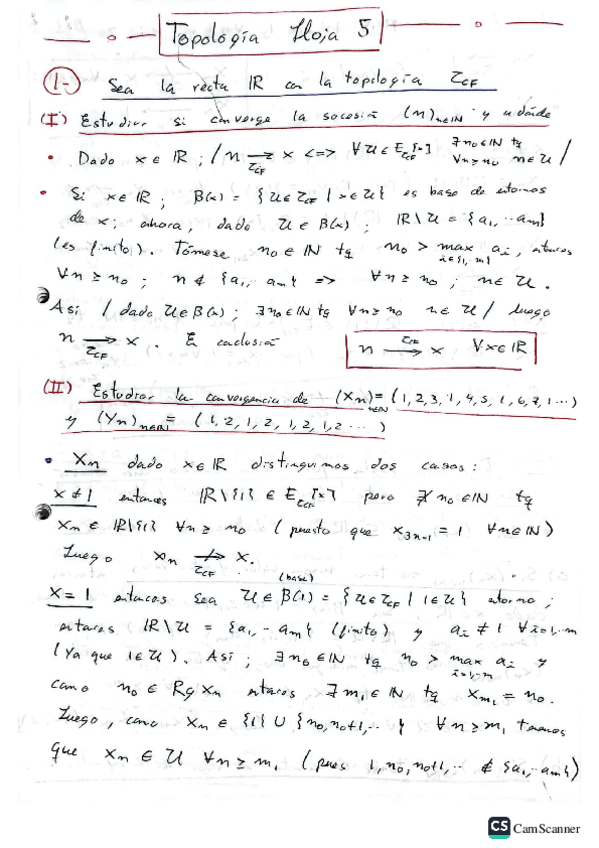 Topología Hoja 5
1- Sea la recta ℝ con la topología τ_CF
(I) Estudiar si converge la sucesión (n)_{n∈ℕ} y a dónde
• Dado x ∈ ℝ ; / n →_{τ_CF} x <=> ∀ U ∈ E_{τ_CF}[x] ∃ n₀ ∈ ℕ tq ∀n≥n₀ n∈U /
• Si x∈ℝ ; B(x) = {U∈τ_CF | x∈U} es base de entornos
de x; ahora, dado U ∈ B(x) ; ℝ\U = {a₁,..am}
(es finito). Tómese n₀∈ℕ tq n₀ > max_{i∈{1,..m}} aᵢ, entonces
∀n≥n₀ ; n∉{a₁,..am} => ∀n≥n₀ ; n∈U.
Así / dado U∈B(x) ; ∃n₀∈ℕ tq ∀n≥n₀ n∈U / luego
n →_{τ_CF} x . En conclusión n →^{τ_CF} x ∀x∈ℝ
(II) Estudiar la convergencia de (Xn)_{n∈ℕ} = (1,2,3,1,4,5,1,6,7,1...)
y (Yn)_{n∈ℕ} = (1,2,1,2,1,2,1,2...)
• Xn dado x∈ℝ distinguimos dos casos:
x≠1 entonces ℝ\{1} ∈ E_{τ_CF}[x] pero ∄ n₀∈ℕ tq
Xn ∈ ℝ\{1} ∀n≥n₀ (puesto que x_{3n-1} = 1 ∀n∈ℕ)
Luego xn ↛_{τ_CF} x.
(base)
X=1 entonces sea U∈B(1) = {U∈τ_CF | 1∈U} entorno;
entonces ℝ\U = {a₁,..am} (finito) y aᵢ≠1 ∀i=1,..m
(Ya que 1∈U). Así; ∃n₀∈ℕ tq n₀ > max_{i=1..m} aᵢ y
como n₀ ∈ Rg Xn entonces ∃m₁∈ℕ tq X_{m₁} = n₀.
Luego, como Xn ∈ {1} ∪ {n₀,n₀+1,..} ∀n≥m₁ tenemos
que Xn ∈ U ∀n≥m₁ (pues 1,n₀,n₀+1,.. ∉ {a₁,..am})
CS CamScanner